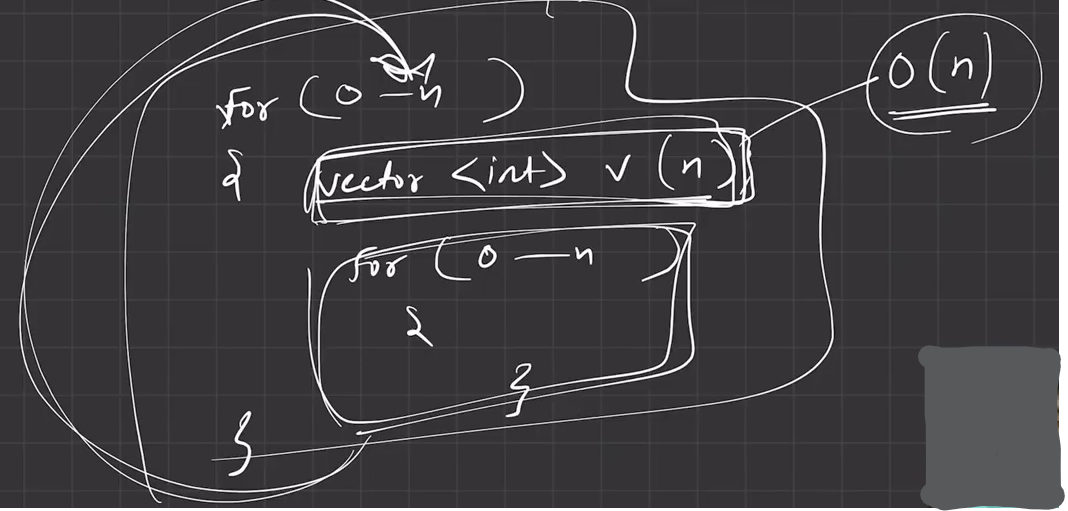 for ( 0 — n )
O(n)
{ vector <int> v (n)
for ( 0 — n )
{
}
}